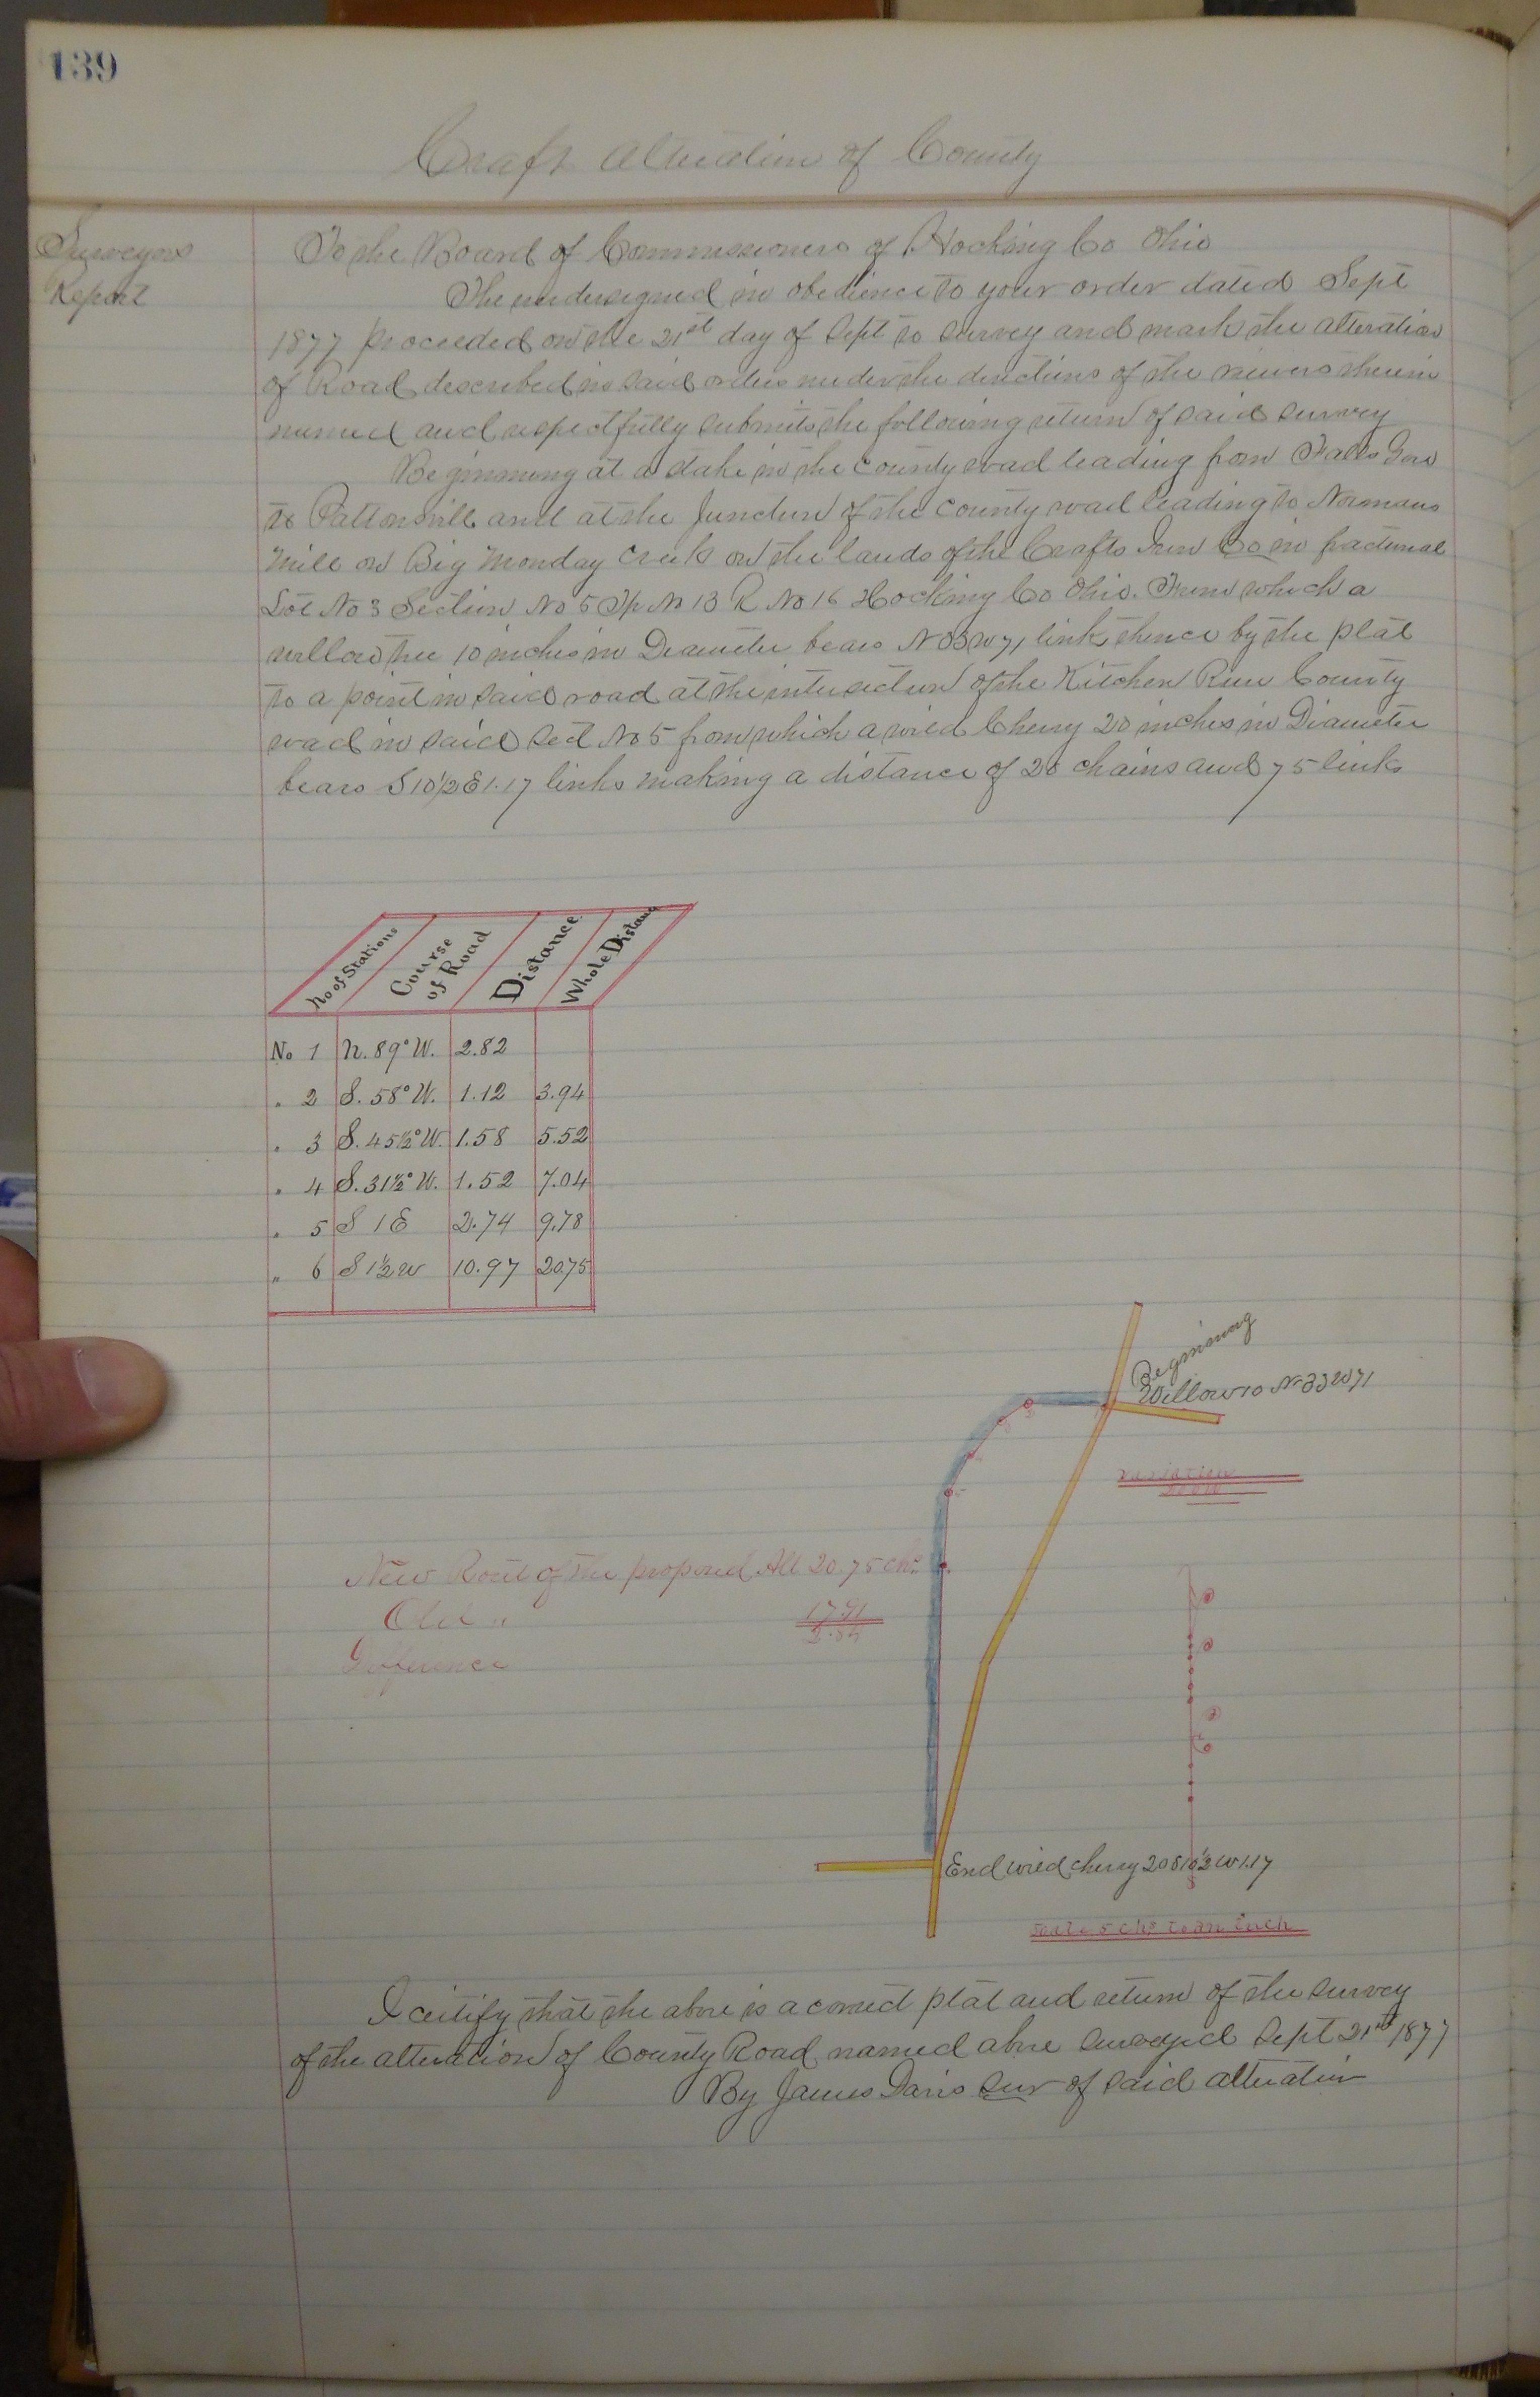 139
Craft Alteration of County
Surveyors
Report
To the Board of Commissioners of Hocking Co Ohio
The undersigned in obedience to your order dated Sept
1877 proceeded on the 21st day of Sept to survey and mark the alteration
of Road described in said order under the directions of the viewers therein
named and respectfully submits the following return of said survey
Beginning at a stake in the County road leading from Falls Gore
to Pattonvill and at the Junction of the County road leading to Normans
Mill on Big Monday Creek on the lands of the Crafts Iron Co in fractional
Lot No 3 Section No 5 Tp No 13 R No 16 Hocking Co Ohio. From which a
willow tree 10 inches in Diameter bears N 33 W 71 link thence by the plat
to a point in said road at the intersection of the Kitchen Run County
road in said Sect No 5 from which a wied Cherry 20 inches in Diameter
bears S 10 1/2 E 1.17 links making a distance of 20 chains and 75 links
No of Stations Course of Road Distance Whole Distanc
No 1 N. 89° W. 2.82
" 2 S. 58° W. 1.12 3.94
" 3 S. 45 1/2° W. 1.58 5.52
" 4 S. 31 1/2° W. 1.52 7.04
" 5 S 1 E 2.74 9.78
" 6 S 1 1/2 W 10.97 20.75
Beginning
Willow 10 N 33 W 71
variation
New Rout of the proposed Alt 20.75 chs
Old " 17.91
Difference 2.84
End wied cherry 20 S 10 1/2 W 1.17
Scale 5 chs to an Inch
I certify that the above is a correct plat and return of the survey
of the alteration of County Road named above surveyed Sept 21st 1877
By James Davis Sur of said alteration